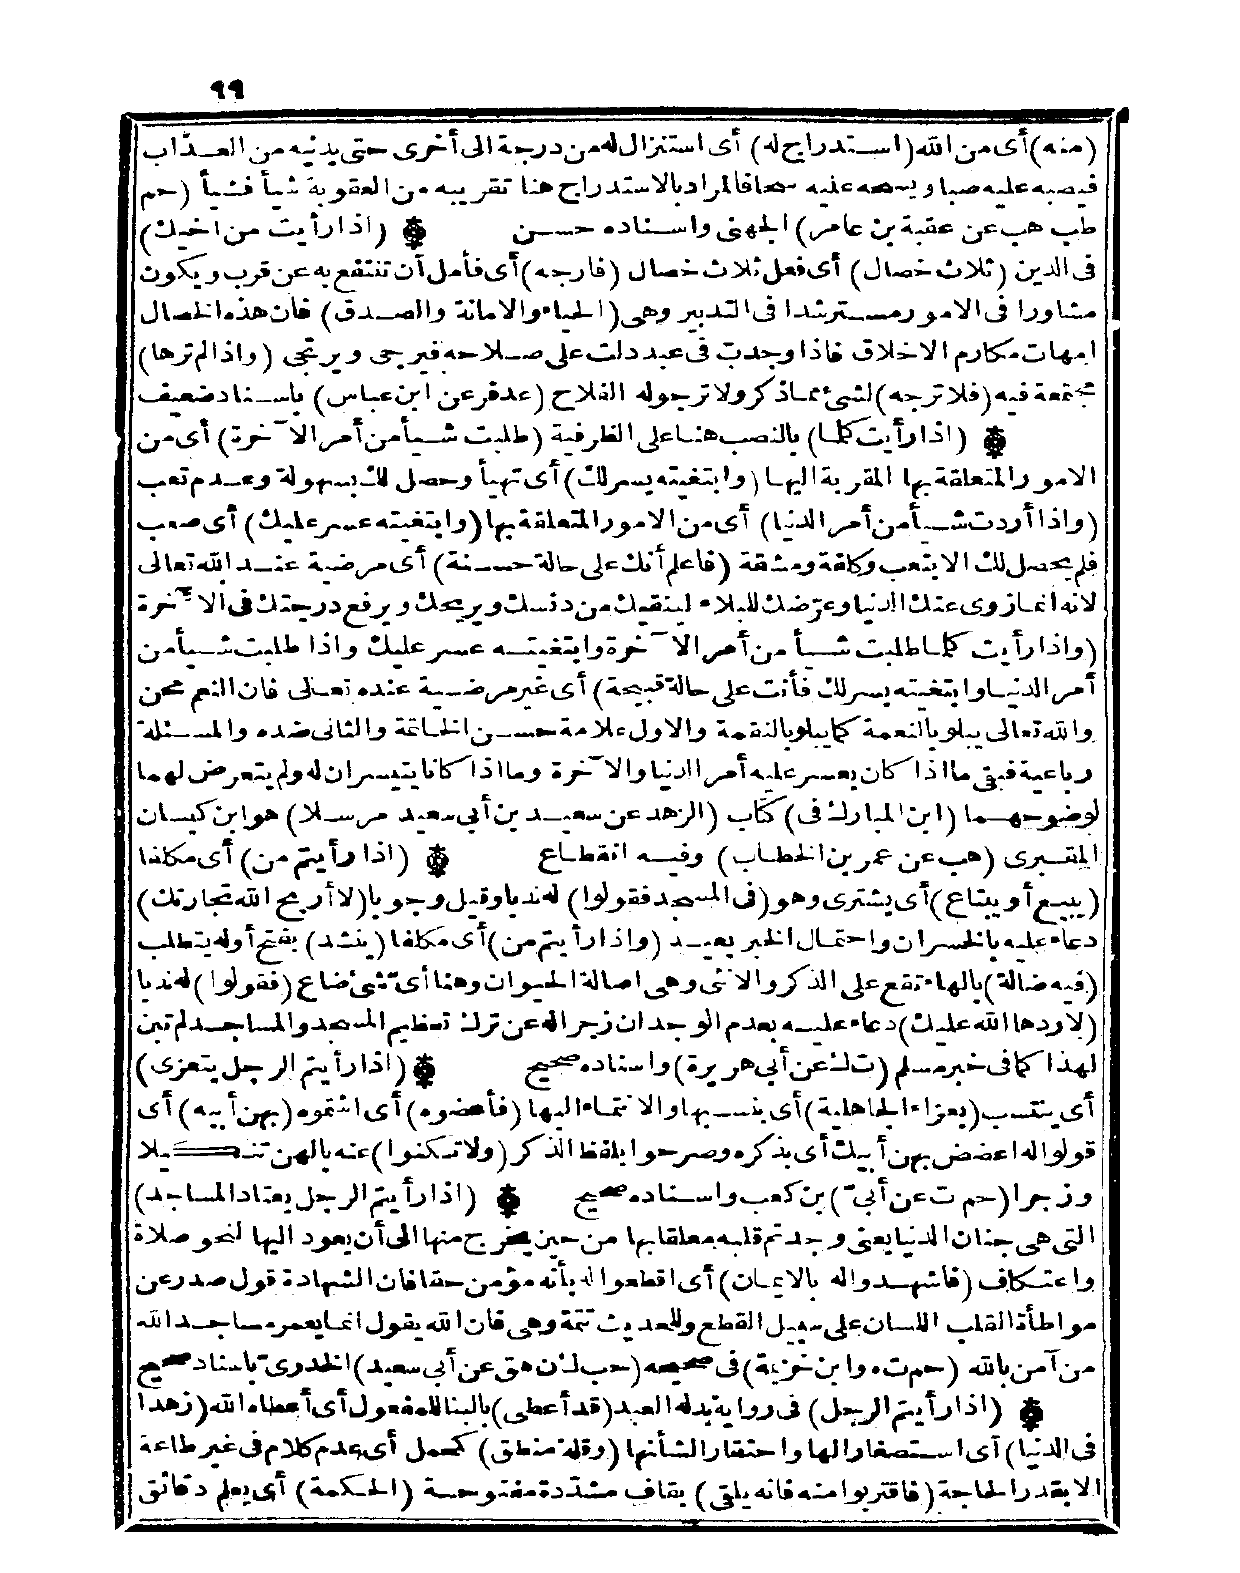 ٩٩
(منه) أى من الله (استدراج له) أى استنزال له من درجة الى أخرى حتى يدنيه من العذاب
فيصبه عليه صبا ويسحه عليه سحا فالمراد بالاستدراج هنا تقريبه من العقوبة شيأ فشيأ (حم
طب هب عن عقبة بن عامر) الجهنى واسناده حسن (اذا رأيت من اخيك)
فى الدين (ثلاث خصال) أى فعل ثلاث خصال (فارجه) أى فأمل أن تنتفع به عن قرب ويكون
مشاورا فى الامور مسترشدا فى التدبير وهى (الحياء والامانة والصدق) فان هذه الخصال
امهات مكارم الاخلاق فاذا وجدت فى عبد دلت على صلاحه فيرجى ويرتجى (واذا لم ترها)
مجتمعة فيه (فلا ترجه) لشئ مما ذكر ولا ترجو له الفلاح (عد فر عن ابن عباس) باسناد ضعيف
(اذا رأيت كلما) بالنصب هنا على الظرفية (طلبت شيأ من أمر الآخرة) أى من
الامور المتعلقة بها المقربة اليها (وابتغيته يسر لك) أى تهيأ وحصل لك بسهولة وعدم تعب
(واذا أردت شيأ من أمر الدنيا) أى من الامور المتعلقة بها (وابتغيته عسر عليك) أى صعب
فلم يحصل لك الا بتعب وكلفة ومشقة (فاعلم أنك على حالة حسنة) أى مرضية عند الله تعالى
لانه انما زوى عنك الدنيا وعرّضك للبلاء لينقيك من دنسك ويريحك ويرفع درجتك فى الآخرة
(واذا رأيت كلما طلبت شيأ من أمر الآخرة وابتغيته عسر عليك واذا طلبت شيأ من
أمر الدنيا وابتغيته يسر لك فأنت على حالة قبيحة) أى غير مرضية عنده تعالى فان النعم محن
والله تعالى يبلو بالنعمة كما يبلو بالنقمة والاول علامة حسن الخاتمة والثانى ضده والمسئلة
رباعية فبقى ما اذا كان يعسر عليه أمر الدنيا والآخرة وما اذا كانا يتيسران له ولم يتعرض لهما
لوضوحهما (ابن المبارك فى) كتاب (الزهد عن سعيد بن أبى سعيد مرسلا) هو ابن كيسان
المقبرى (هب عن عمر بن الخطاب) وفيه انقطاع (اذا رأيتم من) أى مكلفا
(يبيع أو يبتاع) أى يشترى وهو (فى المسجد فقولوا) له ندبا وقيل وجوبا (لا أربح الله تجارتك)
دعاء عليه بالخسران واحتمال الخبر بعيد (واذا رأيتم من) أى مكلفا (ينشد) بفتح أوله يتطلب
(فيه ضالة) بالهاء تقع على الذكر والانثى وهى اصالة الحيوان وهنا أىّ شئ ضاع (فقولوا) له ندبا
(لا ردها الله عليك) دعاء عليه بعدم الوجدان زجرا له عن ترك تعظيم المسجد والمساجد لم تبن
لهذا كما فى خبر مسلم (ت ك عن أبى هريرة) واسناده صحيح (اذا رأيتم الرجل يتعزى)
أى ينتسب (بعزاء الجاهلية) أى بنسبها والانتماء اليها (فأعضوه) أى اشتموه (بهن أبيه) أى
قولوا له اعضض بهن أبيك أى بذكره وصرحوا بلفظ الذكر (ولا تكنوا) عنه بالهن تنكيلا
وزجرا (حم ت عن أبىّ) بن كعب واسناده صحيح (اذا رأيتم الرجل يعتاد المساجد)
التى هى جنان الدنيا يعنى وجدتم قلبه معلقا بها من حين يخرج منها الى أن يعود اليها لنحو صلاة
واعتكاف (فاشهدوا له بالايمان) أى اقطعوا له بأنه مؤمن حقا فان الشهادة قول صدر عن
مواطأة القلب اللسان على سبيل القطع وللحديث تتمة وهى فان الله يقول انما يعمر مساجد الله
من آمن بالله (حم ت ه وابن خزيمة) فى صحيحه (حب ك هق عن أبى سعيد) الخدرىّ باسناد صحيح
(اذا رأيتم الرجل) فى رواية بدله العبد (قد أعطى) بالبناء للمفعول أى أعطاه الله (زهدا
فى الدنيا) أى استصغارا لها واحتقارا لشأنها (وقلة منطق) كحمل أى عدم كلام فى غير طاعة
الا بقدر الحاجة (فاقتربوا منه فانه يلقى) بقاف مشدّدة مفتوحة (الحكمة) أى يعلم دقائق